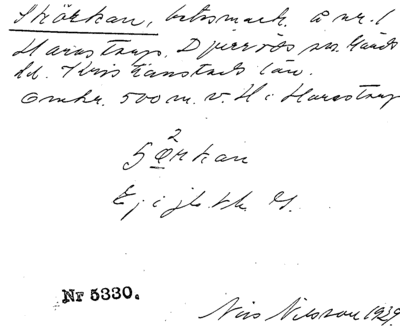 Skörkan, betesmark å nr. 1
Harastorp. Djurröds sn. Gärds
hd. Kristianstads län.
Omkr. 500 m. v. H i Harastorp
2
Sörkan
Ej i jb
Nr 5330.
Nils Nilsson 1929.